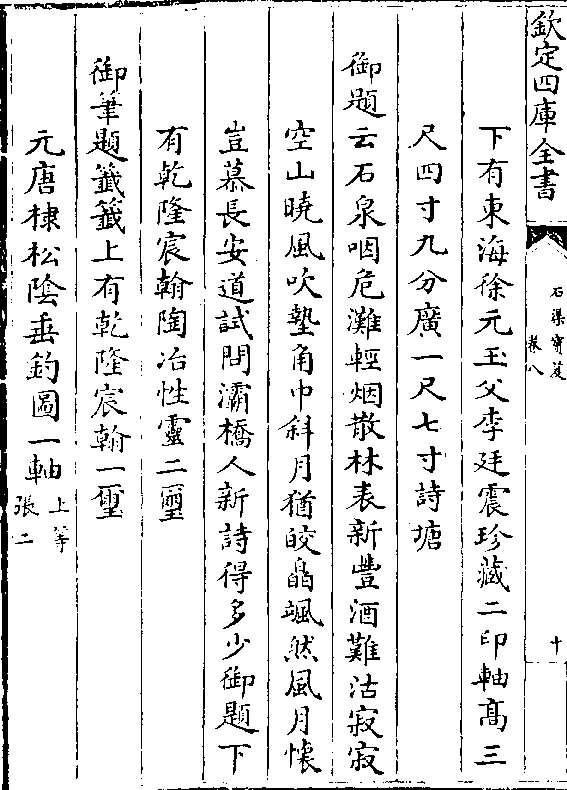 欽定四庫全書
石渠寶笈
卷八
十
下有東海徐元玉父李廷震珍藏二印軸髙三
尺四寸九分廣一尺七寸詩塘
御題云石泉咽危灘輕烟散林表新豐酒難沽寂寂
空山曉風吹墊角巾斜月猶皎皛颯然風月懐
豈慕長安道試問灞橋人新詩得多少御題下
有乾隆宸翰陶冶性靈二璽
御筆題籤籤上有乾隆宸翰一璽
元唐棣松陰垂釣圖一軸
上等
張二